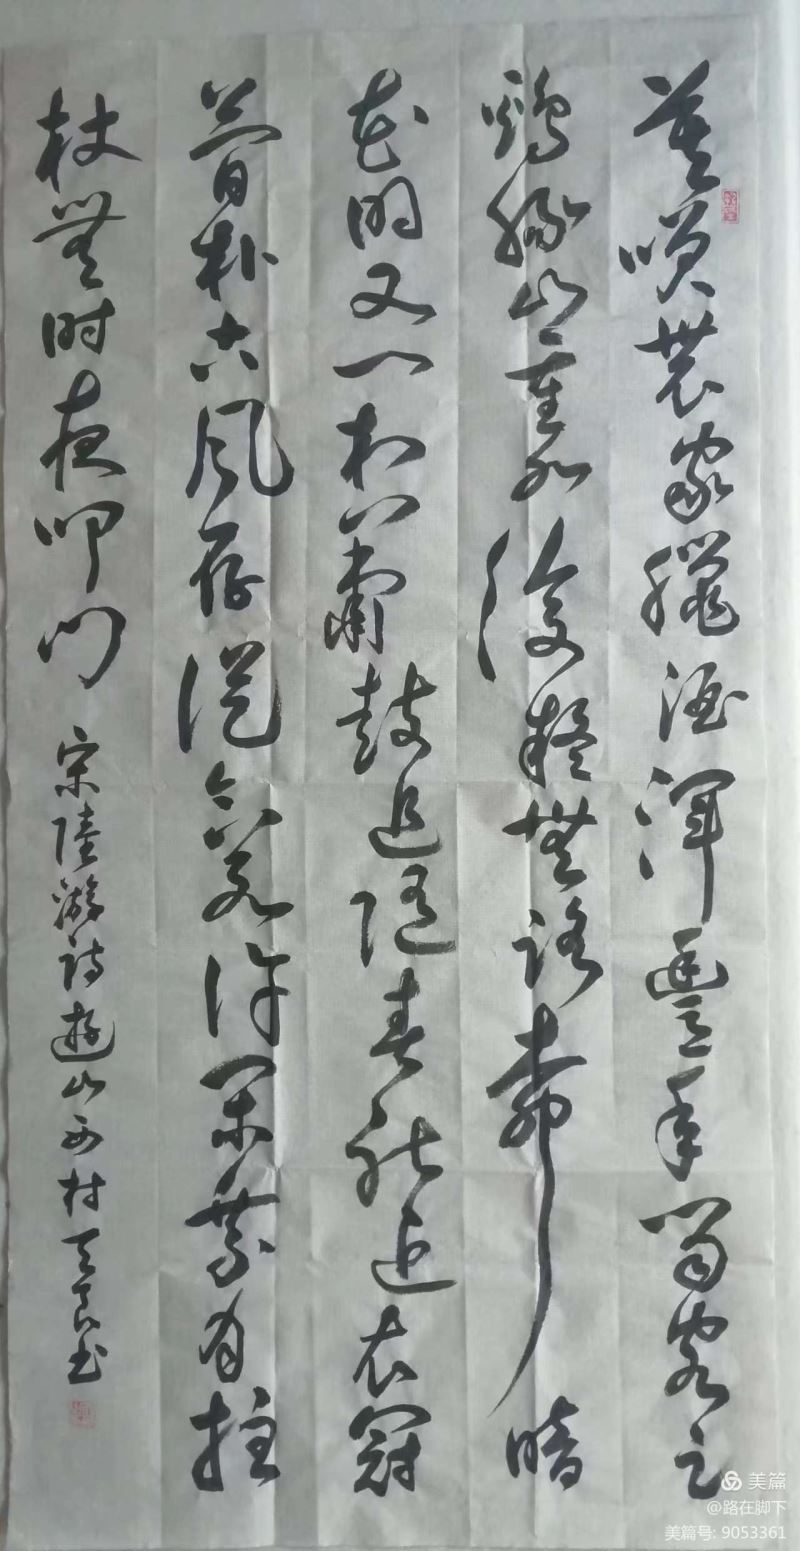 莫咲農家臘酒渾豐年留客足
鷄豚山重水復疑無路柳暗
花明又一村簫鼓追隨春社近衣冠
簡朴古風存從今若許閑乘月拄
杖無時夜叩门 宋陸游詩遊山西村 天良书
美篇
@路在脚下
美篇号: 9053361